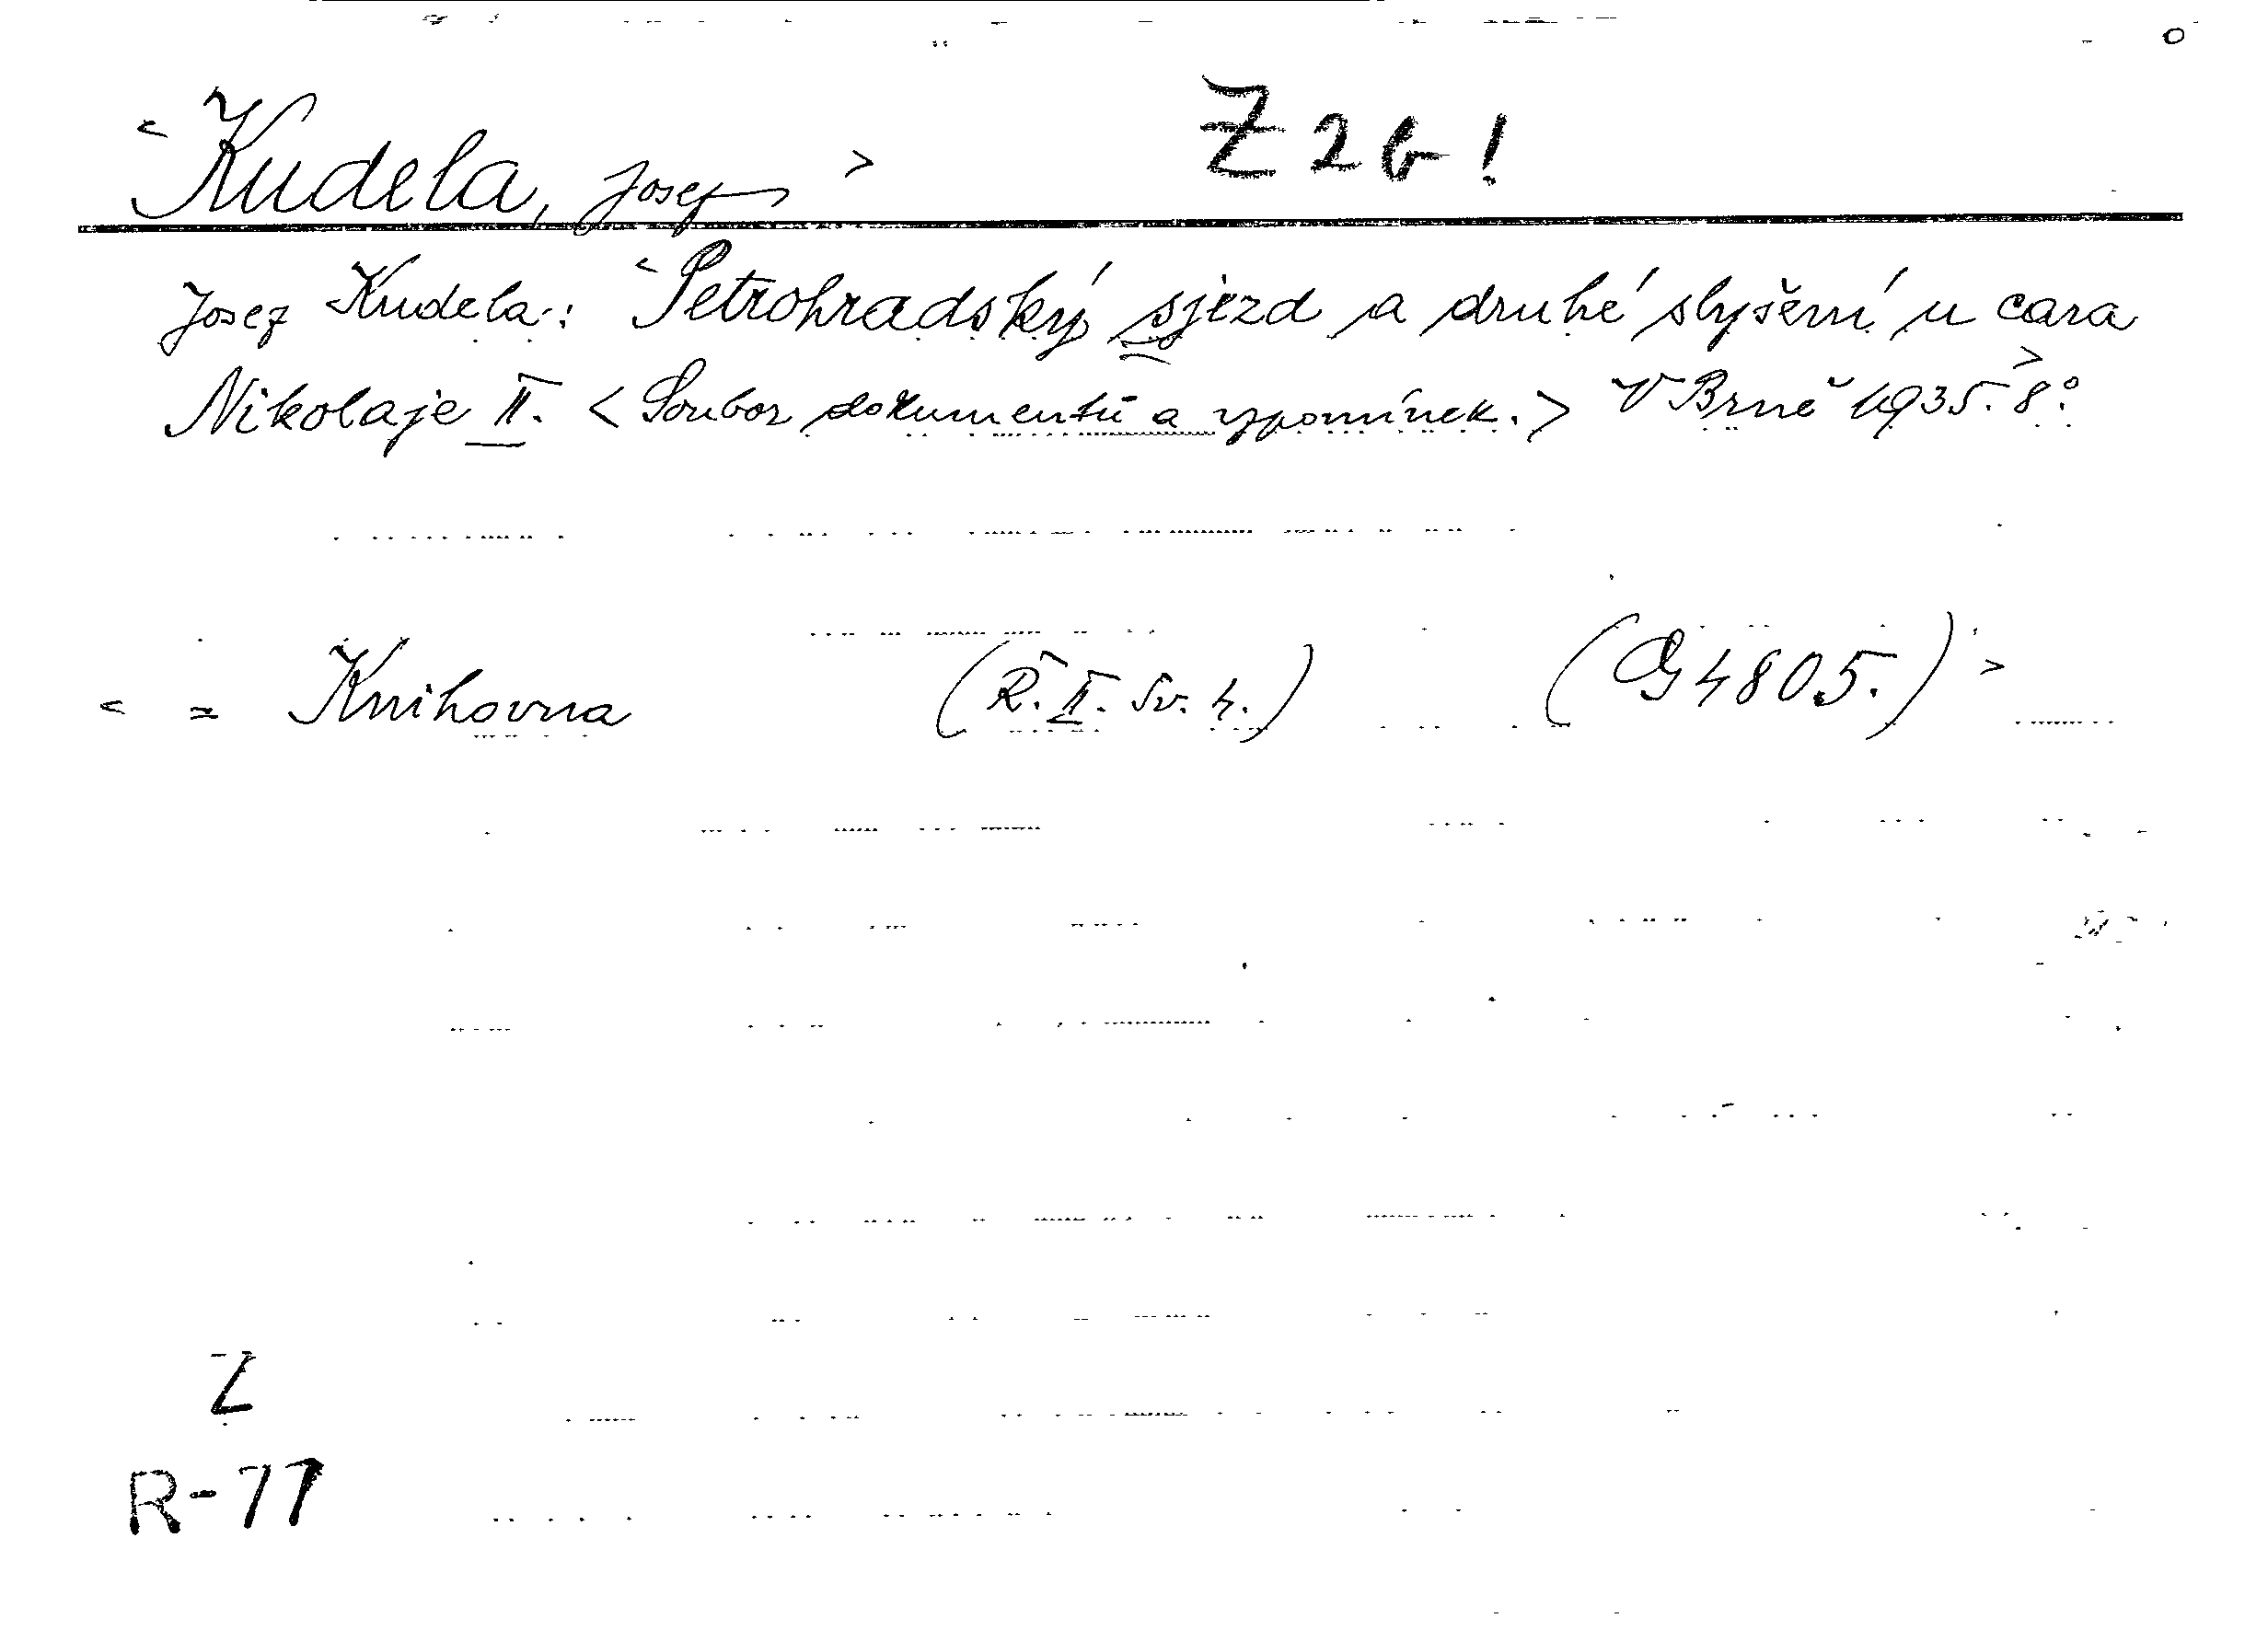 < Kudela, Josef > Z 26!
Josef Kudela: < Petrohradský sjezd a druhé slyšení u cara
Nikolaje II. < Soubor dokumentů a vzpomínek. > V Brně 1935. 8°. >
< = Knihovna (Ř. II. Sv. 4.) (G 4805.) >
Z
R-77